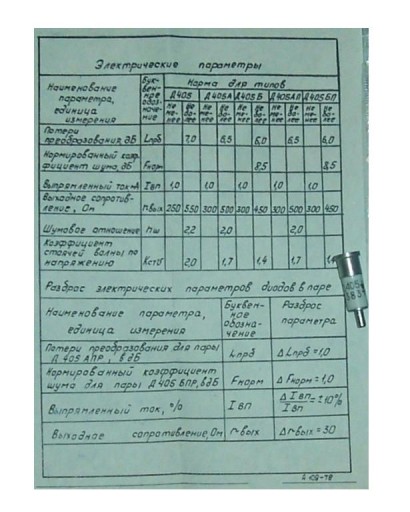 Электрические параметры
Наименование параметра, единица измерения | Буквенное обозначение | Норма для типов
Д405 | Д405А | Д405Б | Д405АП | Д405БП
Не менее | Не более | Не менее | Не более | Не менее | Не более | Не менее | Не более | Не менее | Не более
Потери преобразования, дБ | Lпрб | 7,0 | 6,5 | 6,0 | 6,5 | 6,0
Нормированный коэффициент шума, дБ | Fнорм | 8,5 | 8,5
Выпрямленный ток мА | Iвп | 1,0 | 1,0 | 1,0 | 1,0 | 1,0
Выходное сопротивление, Ом | rвых | 250 | 550 | 300 | 500 | 300 | 450 | 300 | 500 | 300 | 450
Шумовое отношение | nш | 2,2 | 2,0 | 2,0
Коэффициент стоячей волны по напряжению | Kстб | 2,0 | 1,7 | 1,4 | 1,7
Разброс электрических параметров диодов в паре
Наименование параметра, единица измерения | Буквенное обозначение | Разброс параметра
Потери преобразования для пары Д405АПР, в дБ | Lпрб | Δ Lпрб = 1,0
Нормированный коэффициент шума для пары Д405БПР, в дБ | Fнорм | Δ Fнорм = 1,0
Выпрямленный ток, % | I вп | Δ I вп / I вп = ±10%
Выходное сопротивление, Ом | r вых | Δ r вых = 30